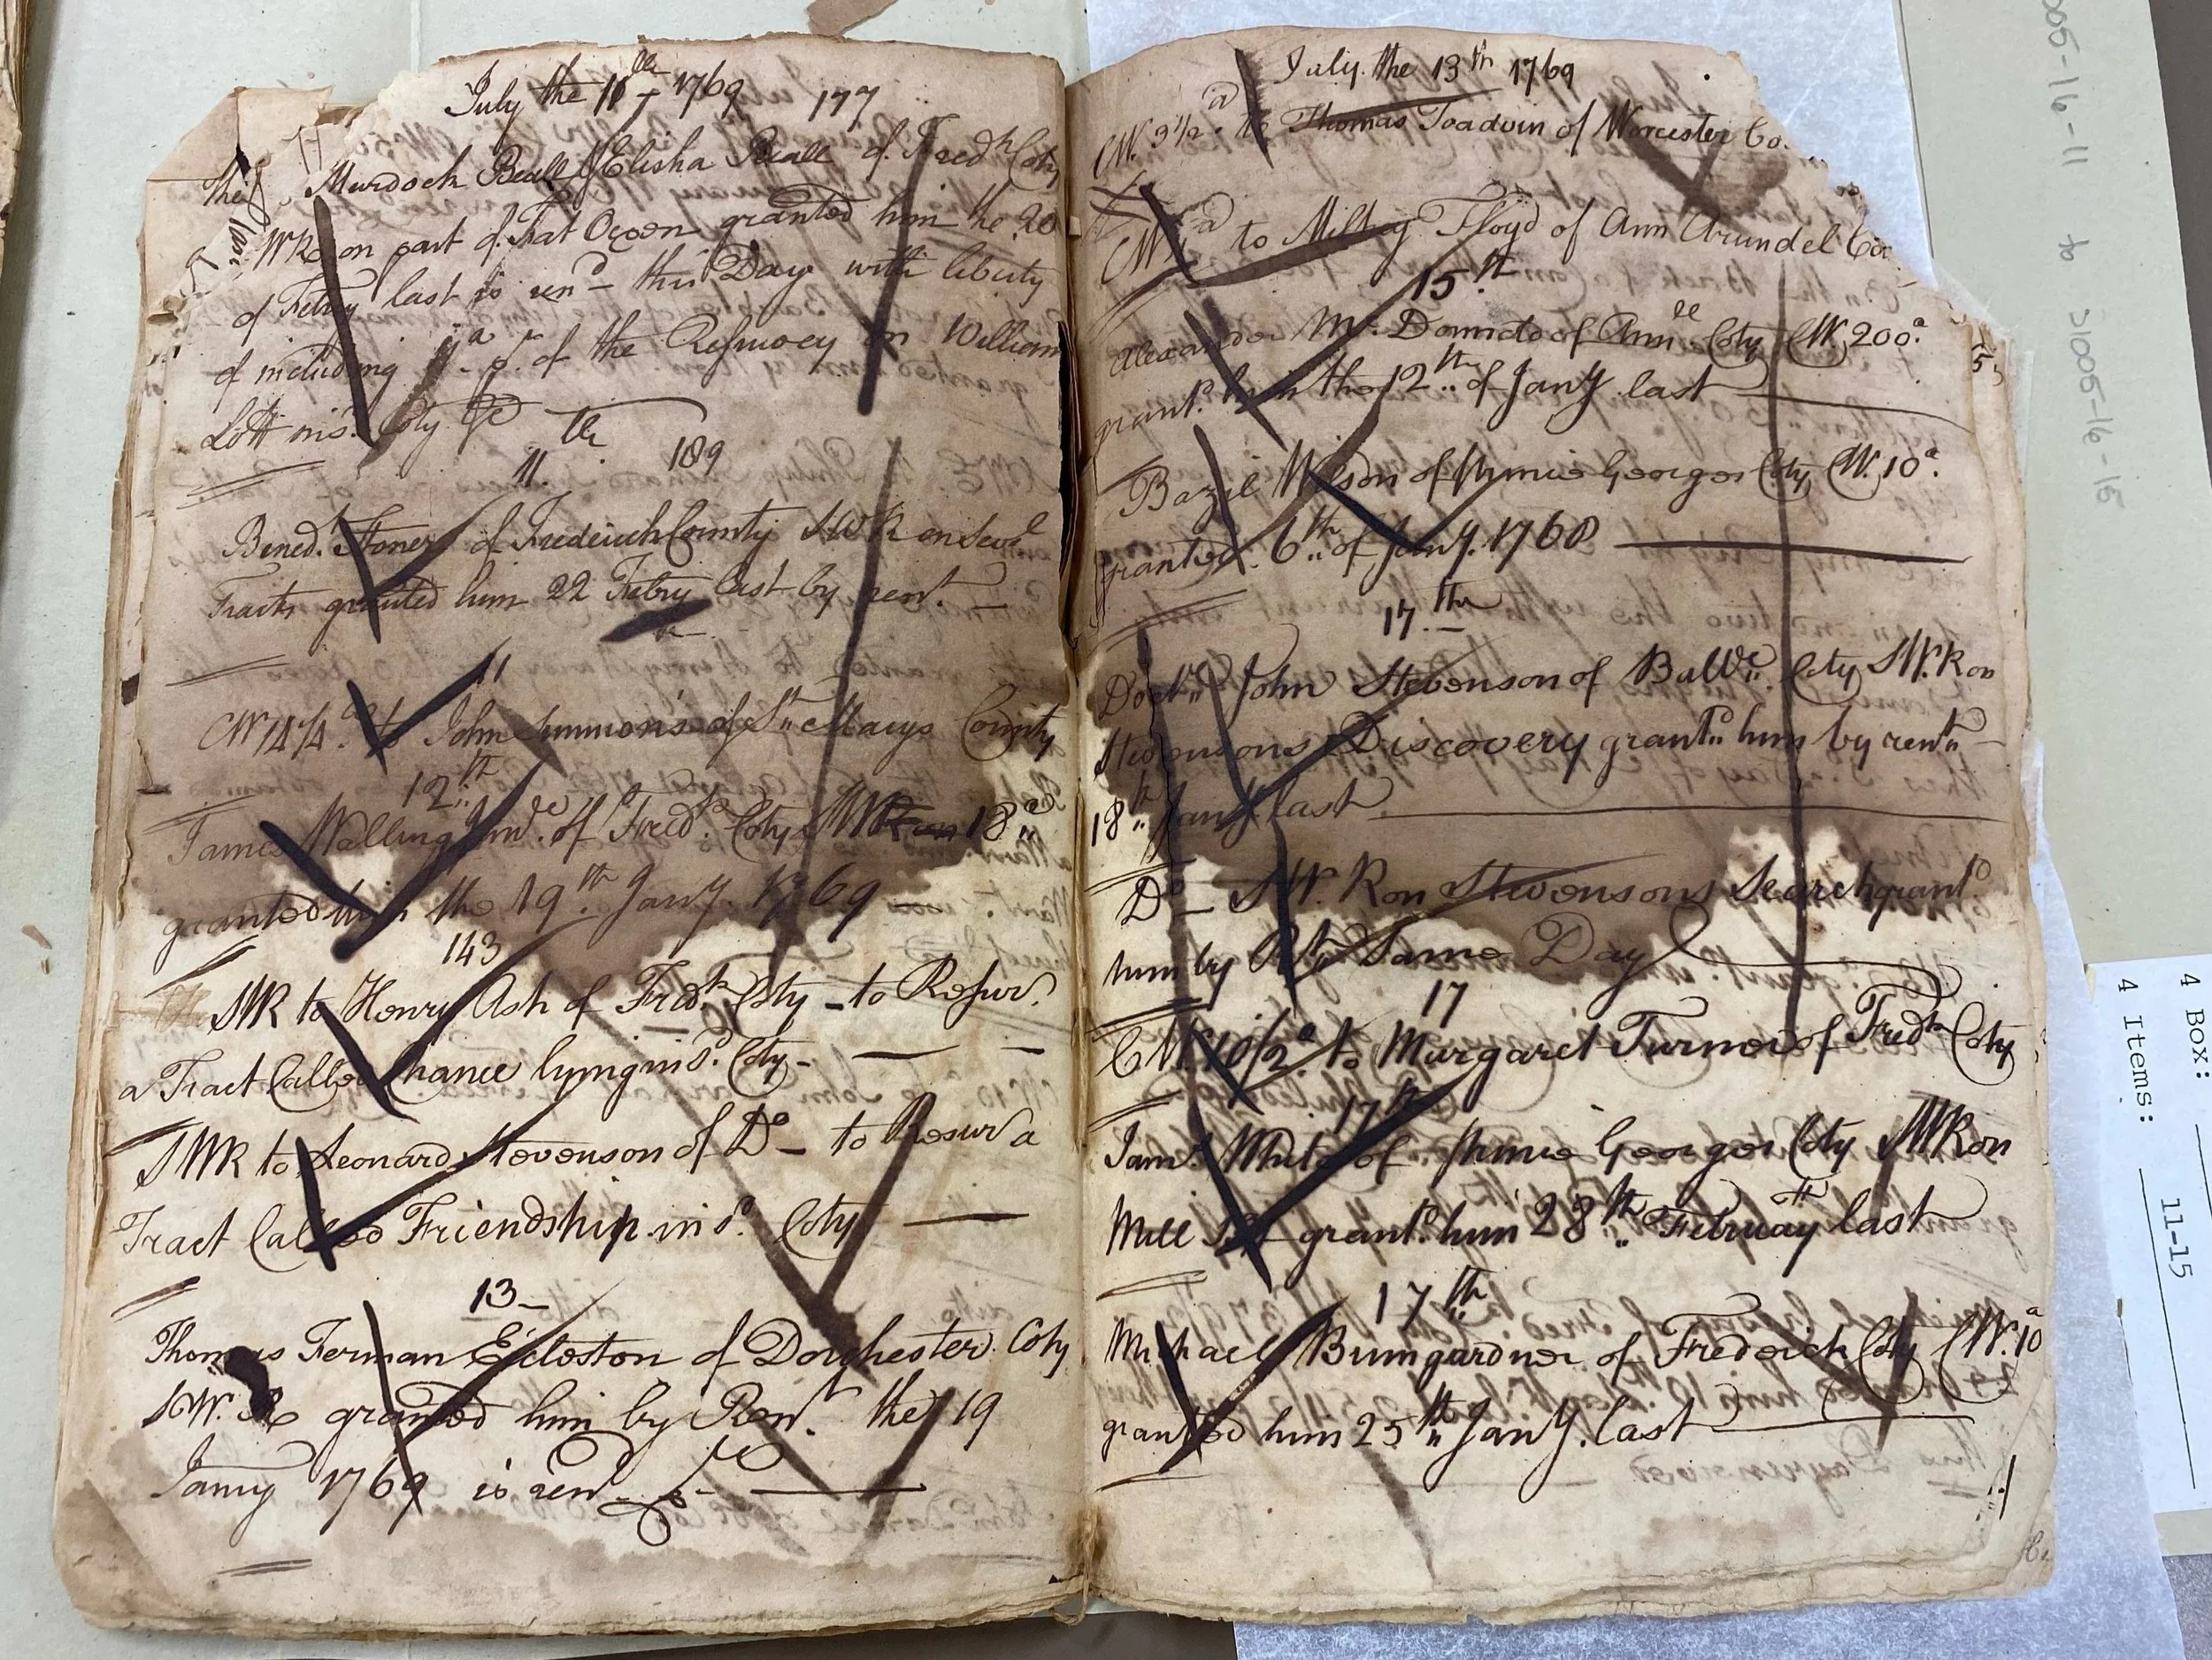 July the 11th 1769 177
The Murdock Beall of Elisha Beall of Fredk Coty
WR on part of Fat Oxen granted him the 20
of Febry last is rend this Day with liberty
of including a of the Resurvey on William
Lott in sd. Coty
11th 189
Bened. Stoner of Frederick County SWR on Sevl
Tracts granted him 22 Febry last by rent. —
11
CW 14¼ as to John Simmons of St Marys County
12th
James Walling Junr. of Fredk. Coty 18 as
granted him the 19th Jany. 1769 —
143
SWR to Henry Ash of Fredk Coty — to Resur.
a Tract Called Chance lying in sd. Coty — — —
SWR to Leonard Stevenson of Do — to Resur a
Tract Called Friendship in sd. Coty —
13 —
Thomas Ferman Ecleston of Dorchester Coty
SW. R granted him by Rent. the 19
Janry 1769 is rend. —
July the 13th 1769
CW. 9½ a to Thomas Toadvin of Worcester Co.
CW a to Floyd of Ann Arundel Co
15th
Alexander Mc. of Annll Coty CW 200 a.
grant. him the 12th of Jany last —
Bazil Wilson of Prince Georges Coty CW. 10 a.
granted 6th of Jany. 1768 —
17th
Doctr John Stevenson of Balte. Coty SW. R on
Stevensons Discovery grantd him by rent —
18th Jany last —
Do — SW. R on Stevensons Search grantd
him by Rt Same Day
17
CW. 10½ a to Margaret Turner of Fredk Coty
17th
Jams. White of Prince Georges Coty SWR on
Mill grantd. him 28th February last
17th
Michael Bumgardner of Frederick Coty CW. 10 a
granted him 25th Jany. last —
S1005-16-11 to S1005-16-15
4 Box:
4 Items: 11-15